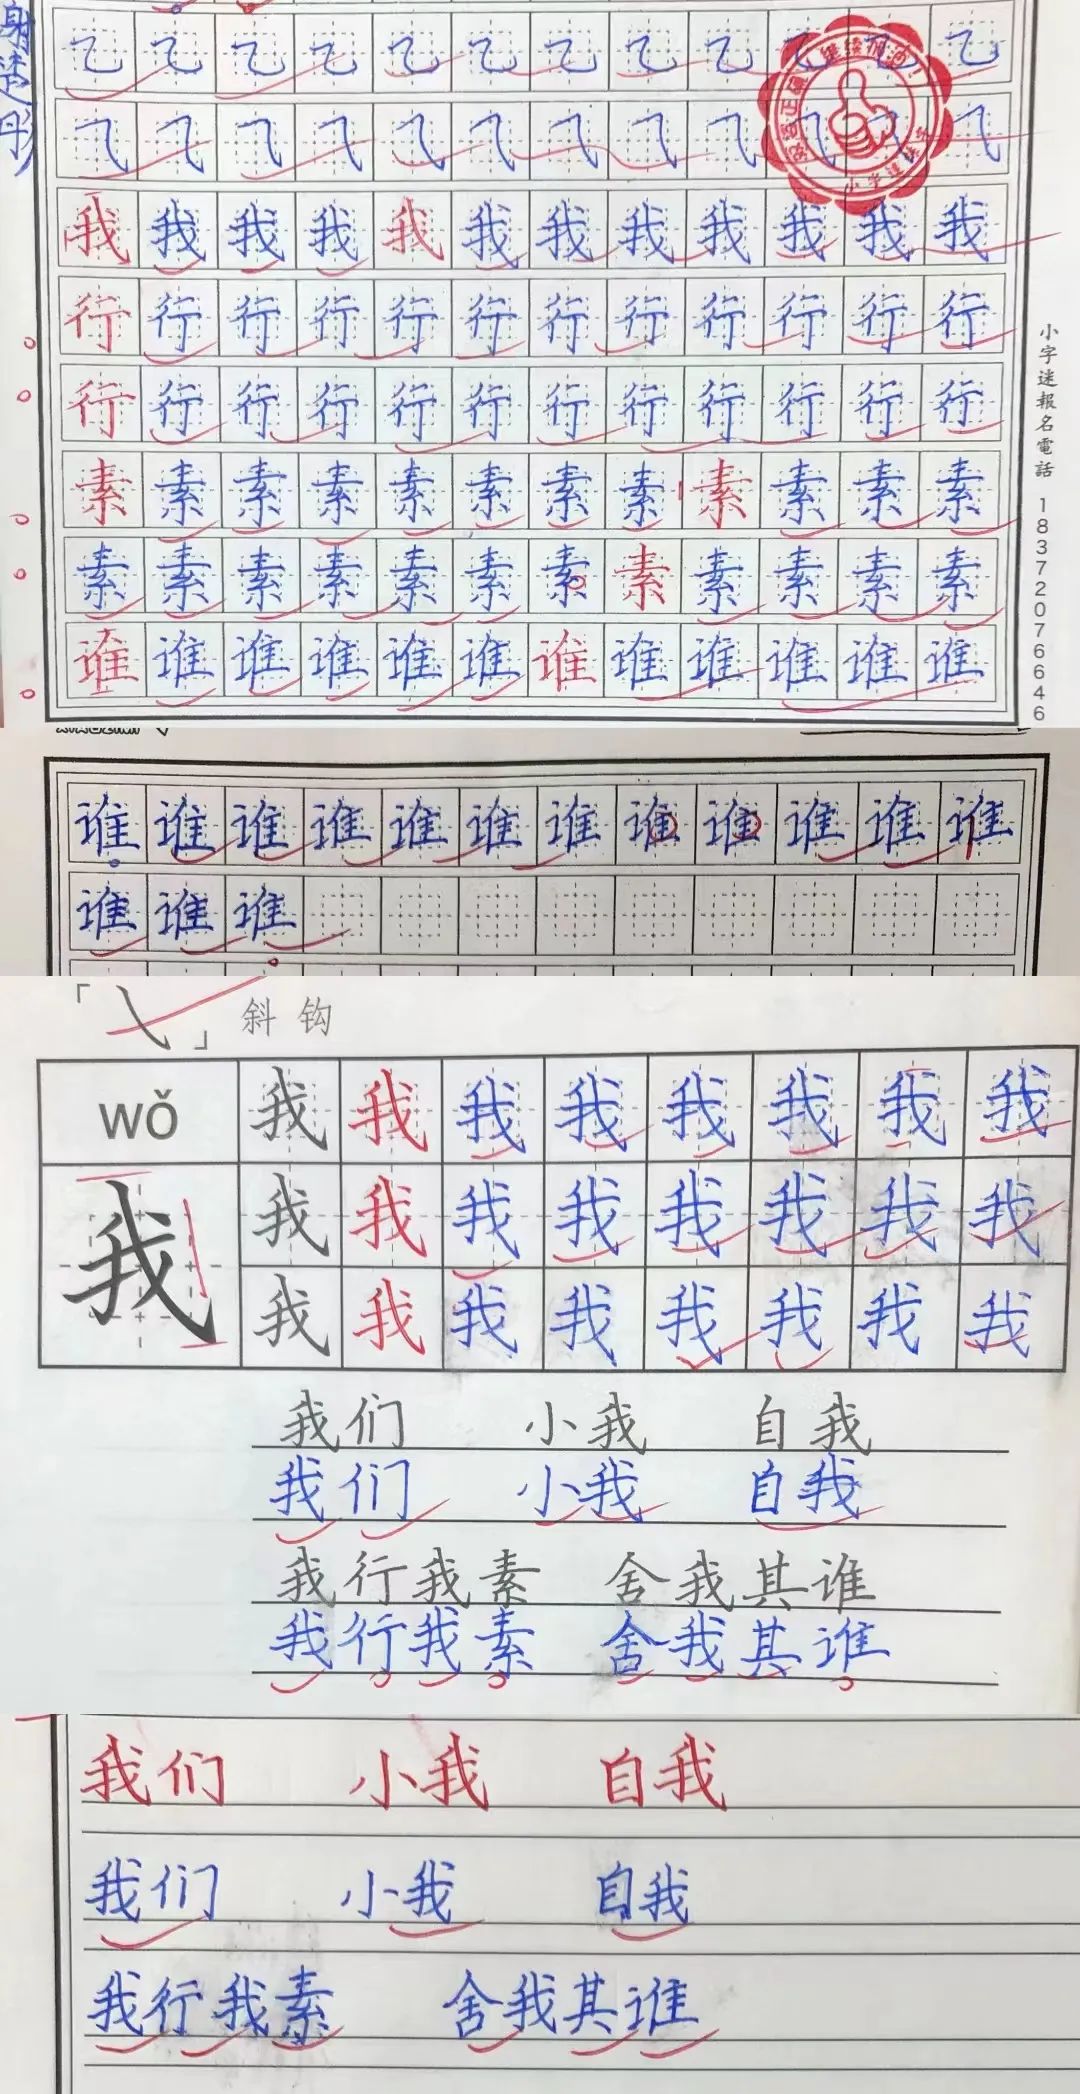 乙 乙 乙 乙 乙 乙 乙 乙 乙 乙 乙 乙
⺄ ⺄ ⺄ ⺄ ⺄ ⺄ ⺄ ⺄ ⺄ ⺄ ⺄ ⺄
我 我 我 我 我 我 我 我 我 我 我 我
行 行 行 行 行 行 行 行 行 行 行 行
行 行 行 行 行 行 行 行 行 行 行 行
素 素 素 素 素 素 素 素 素 素 素 素
素 素 素 素 素 素 素 素 素 素 素 素
谁 谁 谁 谁 谁 谁 谁 谁 谁 谁 谁 谁
小字迷報名電話 18372076646
谁 谁 谁 谁 谁 谁 谁 谁 谁 谁 谁 谁
谁 谁 谁
「㇂」斜钩
wǒ 我 我 我 我 我 我 我 我
我 我 我 我 我 我 我 我 我
我 我 我 我 我 我 我 我
我们 小我 自我
我们 小我 自我
我行我素 舍我其谁
我行我素 舍我其谁
我们 小我 自我
我们 小我 自我
我行我素 舍我其谁